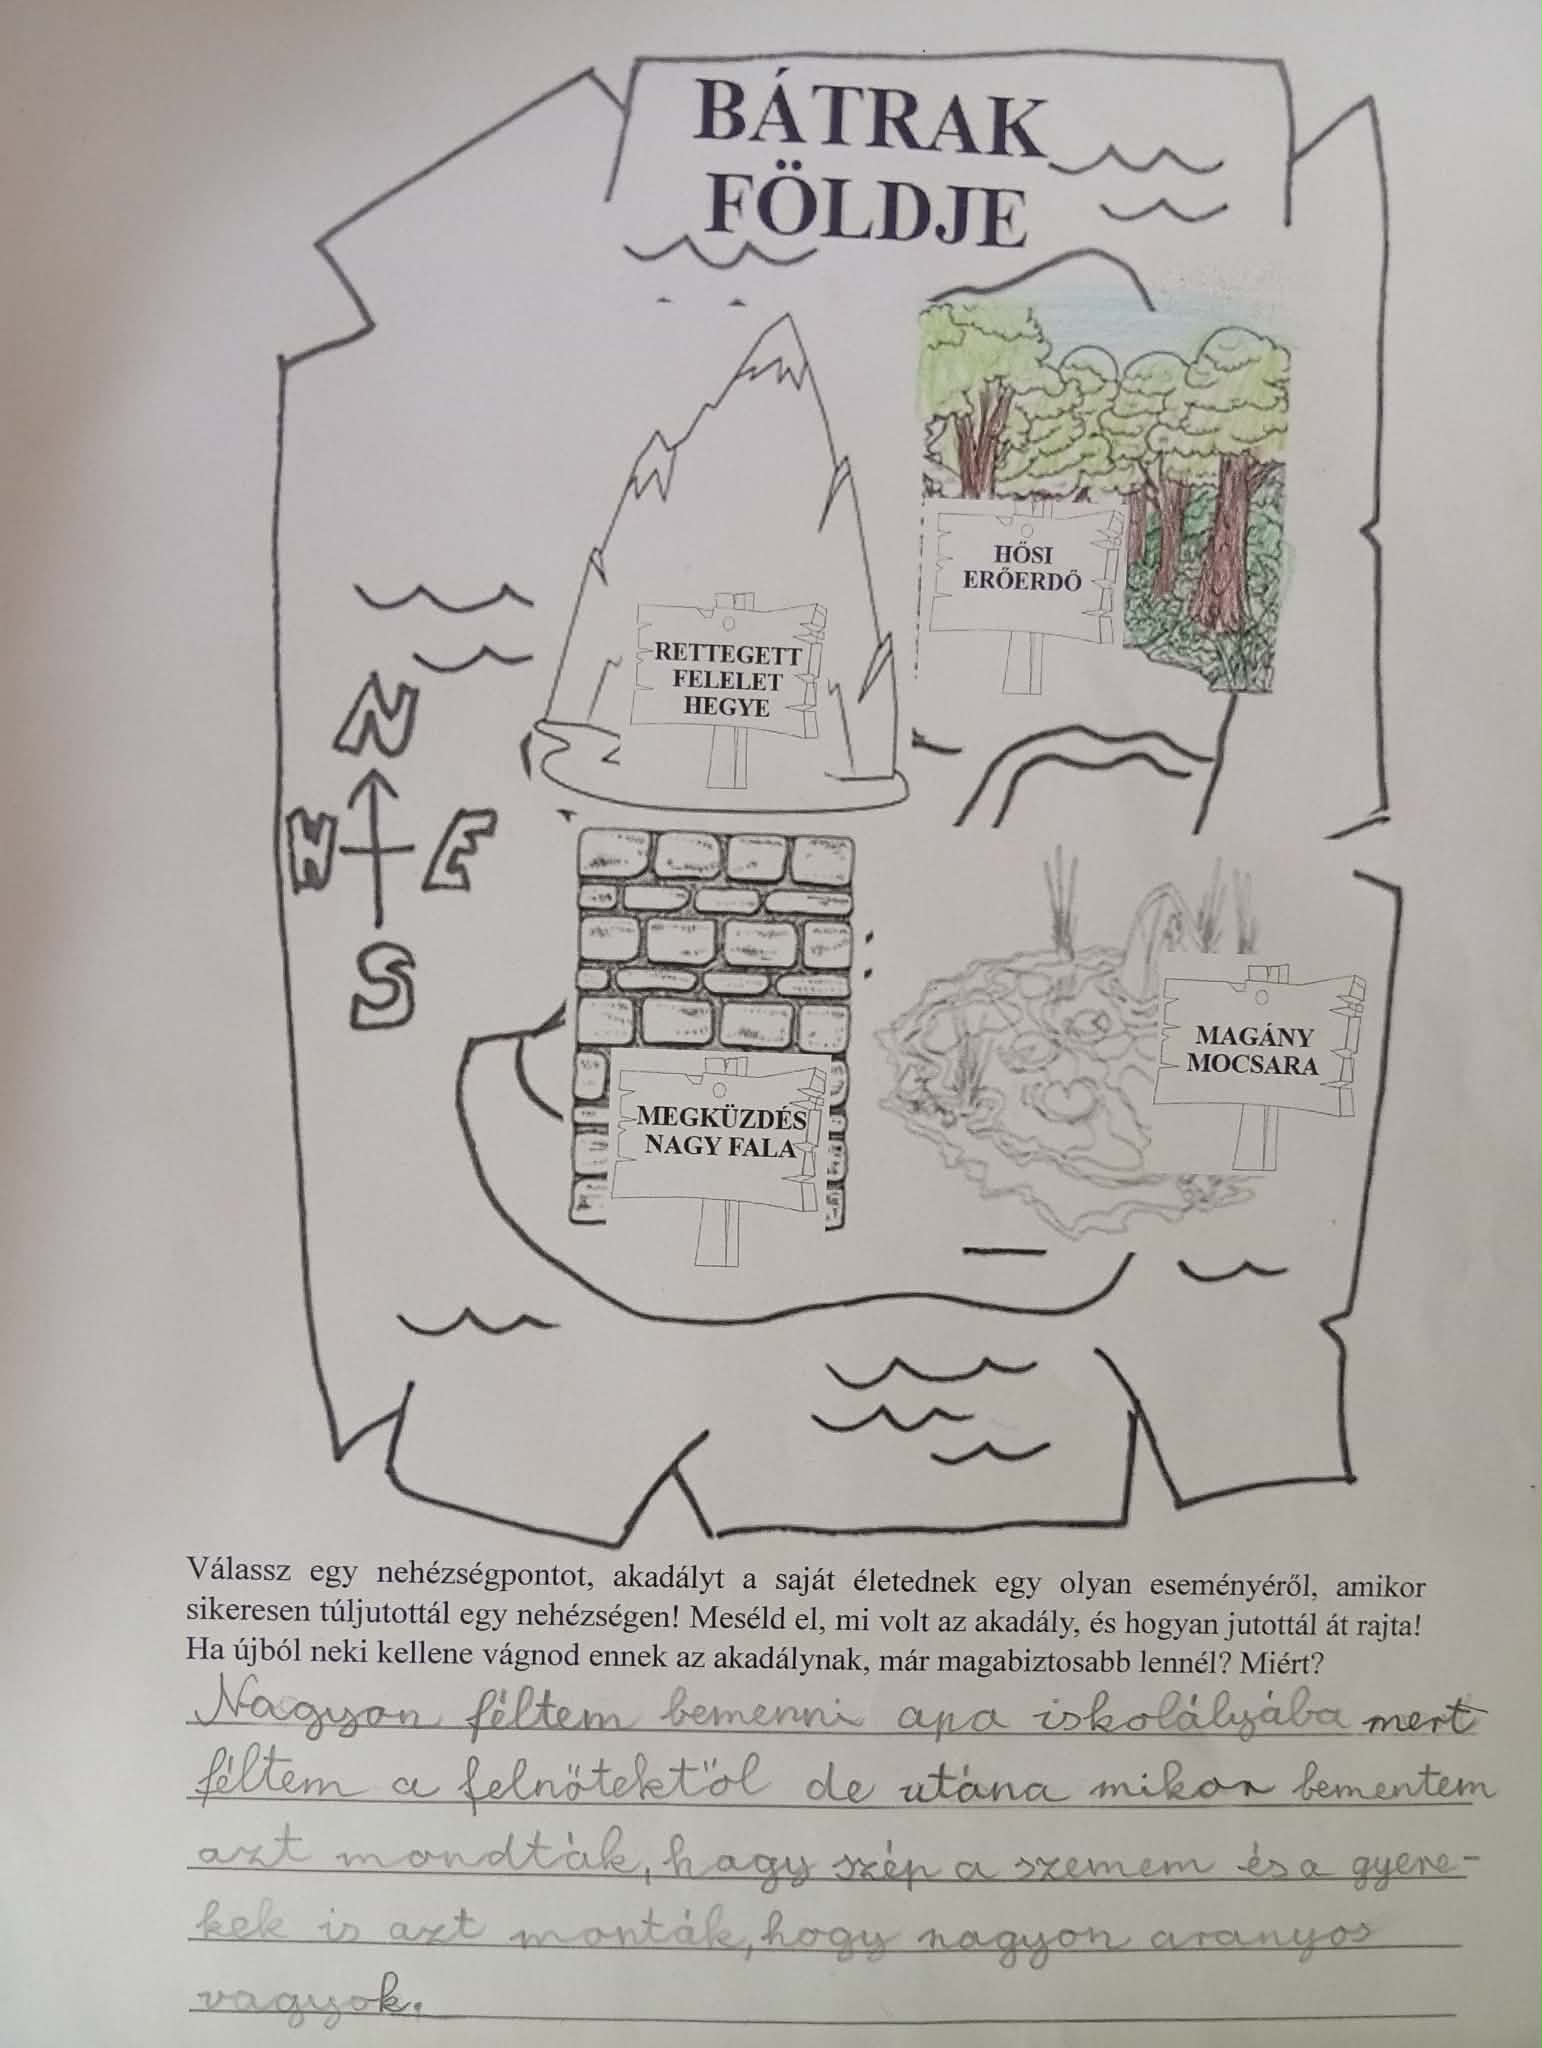 BÁTRAK
FÖLDJE
HŐSI
ERŐERDŐ
RETTEGETT
FELELET
HEGYE
N
W E
S
MAGÁNY
MOCSARA
MEGKÜZDÉS
NAGY FALA
Válassz egy nehézségpontot, akadályt a saját életednek egy olyan eseményéről, amikor
sikeresen túljutottál egy nehézségen! Meséld el, mi volt az akadály, és hogyan jutottál át rajta!
Ha újból neki kellene vágnod ennek az akadálynak, már magabiztosabb lennél? Miért?
Nagyon féltem bemenni apa iskolályába mert
féltem a felnőtektől de utána mikor bementem
azt mondták, hogy szép a szemem és a gyere-
kek is azt monták, hogy nagyon aranyos
vagyok.